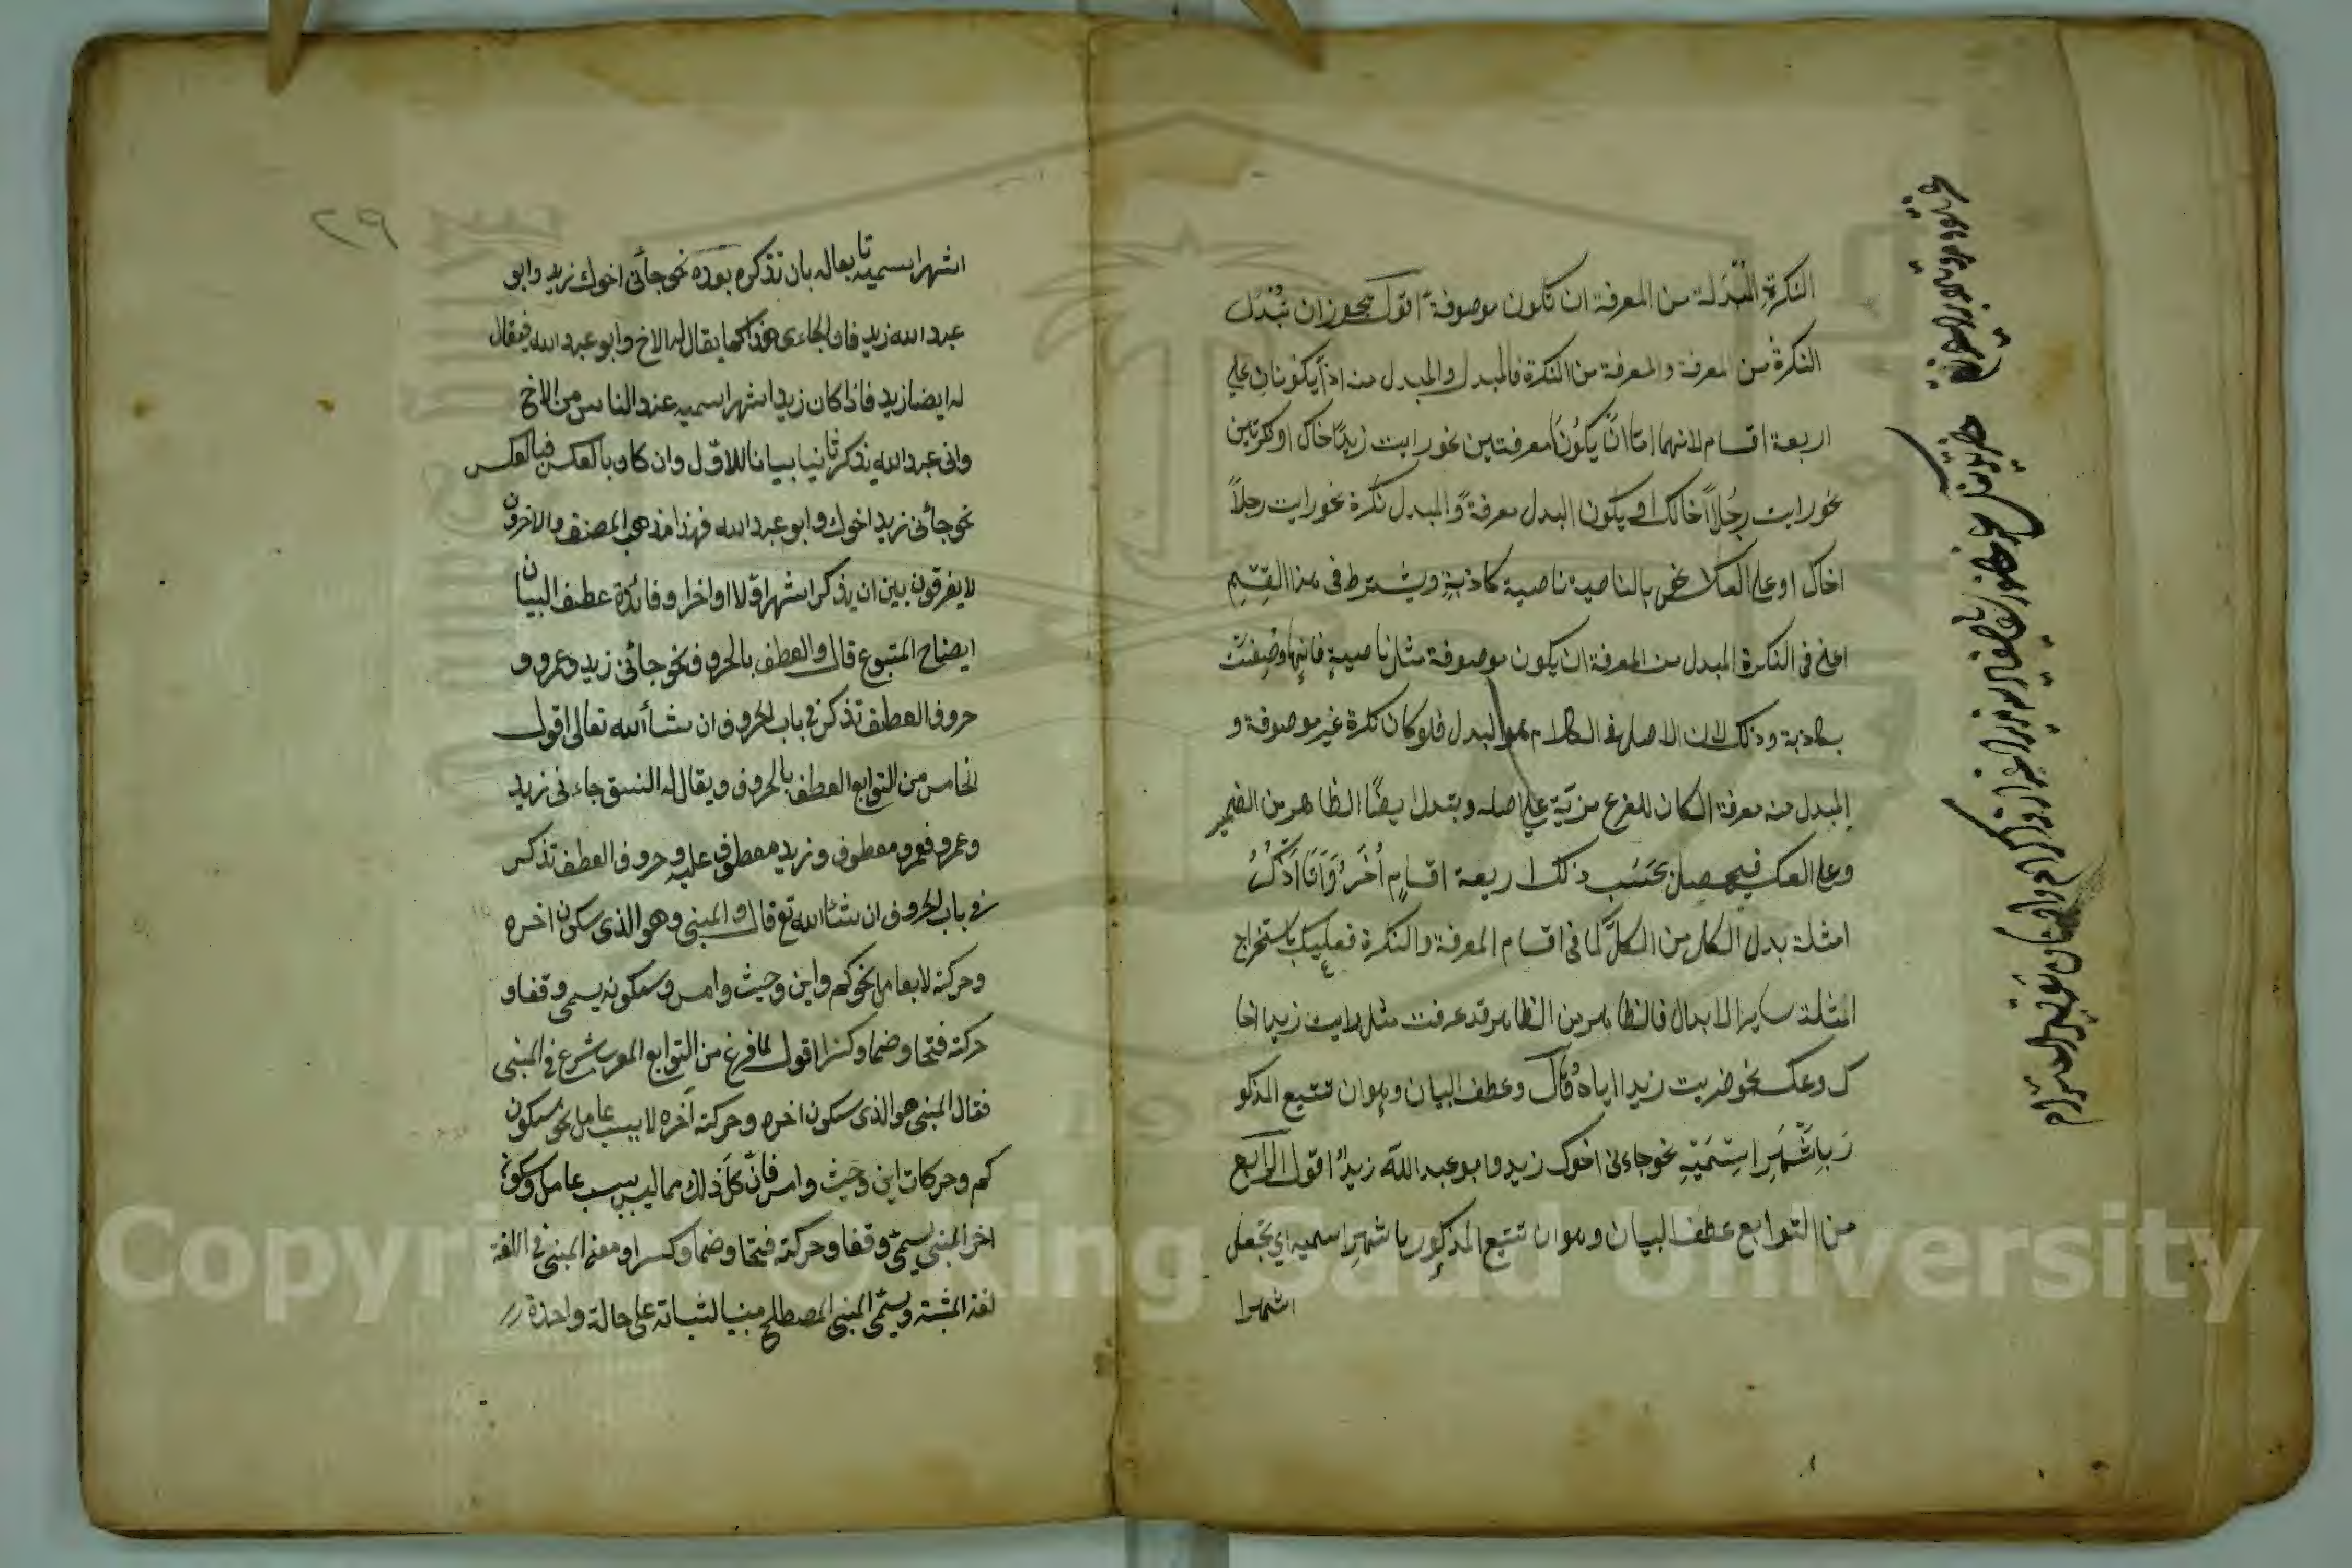 النكرةِ المُبْدَلة من المعرفة ان تكون موصوفة اقول يجوز ان تُبْدَل
النكرةُ من المعرفة والمعرفة من النكرة فالمبدل والمبدل منه اذاً يكونان على
اربعة اقسام لانهما امّا انْ يكونا معرفتين نحو رايت زيدًا اخاك او نكرتين
نحو رايت رجُلاً اخالك او يكون البدل معرفةً والمبدل نكرة نحو رايت رجلاً
اخاك او على العكس نحو بالناصية ناصية كاذبةٍ ويشترط فى هذا القِسْم
اعنى فى النكرة المبدل من المعرفة ان يكون موصوفة مثل ناصيةٍ فانها وُصِفَتْ
بكاذبة وذلك لان الاصل فى الكلام هو البدل فلو كان نكرة غير موصوفة و
المبدل منه معرفة لكان للفرع مزيّة على اصله ويبدل ايضًا الظاهر من الضمير
وعلى العكس فيحصل بحَسَب ذلك اربعة اقسامٍ أُخَرُ وَاَنَا اَذْكُرُ
امثلة بدل الكل من الكلّ كما فى اقسام المعرفة والنكرة فعليك باستخراج
امثلة ساير الابدال فالظاهر من الظاهر قد عرفت مثل رايت زيدا اخا
ك وعكسه نحو ضربت زيدا اياه قال وعطف البيان وهو ان تتبع المذكو
رَ بِاَشْهَرِ اسْمَيْهِ نحو جاءنى اخوك زيد وابو عبد الله زيدٌ اقول الرابع
من التوابع عطف البيان وهو ان تتبع المذكور باشهر اسميه اي تجعل
اشهرا
٢٩
اشهر اسميه تابعا له بان تذكره بعده نحو جائنى اخوك زيد وابو
عبد الله زيد فان الجاءى هذا كما يقال له الاخ وابو عبد الله فيقال
له ايضا زيد فاذا كان زيد اشهر اسميه عند الناس من الاخ
وابى عبد الله يذكر ثانيا بيانا للاوّل وان كان بالعكس فبالعكس
نحو جائنى زيد اخوك وابو عبد الله فهذا مذهب المصنف والاخرون
لا يفرقون بين ان يذكر اشهر اوّلا او اخرا وفائدة عطف البيان
ايضاح المتبوع قال والعطف بالحروف نحو جائنى زيد وعمرو و
حروف العطف تذكر فى باب الحروف ان شاء الله تعالى اقول
الخامس من التوابع العطف بالحروف ويقال له النسق جاءنى زيد
وعمرو فعمرو معطوف وزيد معطوف عليه وحروف العطف تذكر
فى باب الحروف ان شاء الله تع قال والمبنى وهو الذى سكون اخره
وحركته لا بعامل نحو كم واين وحيث وامس وسكونه يسمى وقفا و
حركته فتحا وضما وكسرا اقول لما فرغ من التوابع المعرب شرع فى المبنى
فقال المبنى هو الذى سكون اخره وحركته آخره لا بسبب عامل نحو سكون
كم وحركات اين وحيث وامس فانّ كلّ ذلك مما ليس بسبب عامل وسكون
اخر المبنى يسمىّ وقفا وحركته فتحا وضما وكسرا ومعنى المبنى فى اللغة
ويسمّى المبنى المصطلح مبنيا لثباته على حالة واحدة